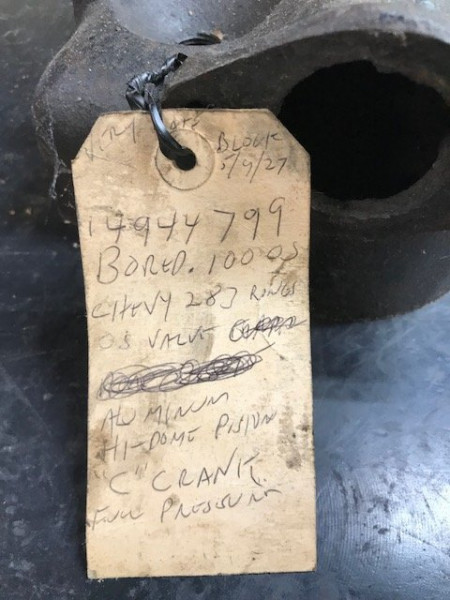 VERY LATE BLOCK
5/9/27
14944799
BORED .100 OS
CHEVY 283 RINGS
OS VALVE
ALUMINUM
HI-DOME PISTON
"C" CRANK
FULL PRESSURE